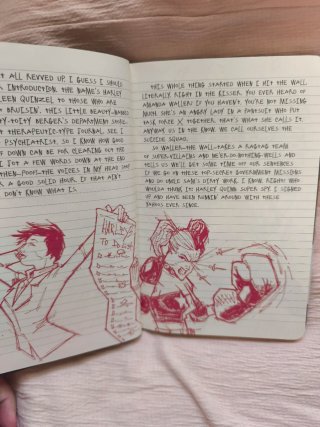 T ALL REVVED UP. I GUESS I SHOULD
INTRODUCTION. THE NAME'S HARLEY
LEEN QUINZEL TO THOSE WHO ARE
BRUISIN'. THIS LITTLE BEAUTY-NABBED
TY-TOITY BERGER'S DEPARTMENT STORE-
THERAPEUTIC-TYPE JOURNAL. SEE, I
PSYCHIATRIST, SO I KNOW HOW GOOD
DOWN CAN BE FOR CLEARING OUT THE
JOT A FEW WORDS DOWN AT THE END
THEN-POOF!-THE VOICES IN MY HEAD
A GOOD SOLID HOUR. IF THAT AIN'T
DON'T KNOW WHAT IS.
HARLEY'S
TO DO LIST
THIS WHOLE THING STARTED WHEN I HIT THE WALL.
LITERALLY. RIGHT IN THE KISSER. YOU EVER HEARD OF
AMANDA WALLER? IF YOU HAVEN'T, YOU'RE NOT MISSING
MUCH. SHE'S AN ANGRY LADY IN A PANTSUIT WHO PUT
TASK FORCE X TOGETHER. THAT'S WHAT SHE CALLS IT,
ANYWAY. US IN THE KNOW, WE CALL OURSELVES THE
SUICIDE SQUAD.
SO WALLER-THE WALL-TAKES A RAGTAG TEAM
OF SUPER-VILLAINS AND NEVER-DO-NOTHING-WELLS AND
TELLS US WE'LL GET SOME TIME OFF OUR SENTENCES
IF WE GO ON THESE TOP-SECRET GOVERNMENT MISSIONS
AND DO UNCLE SAM'S DIRTY WORK. I KNOW, RIGHT? WHO
WOULDA THUNK IT: HARLEY QUINN, SUPER SPY. I SIGNED
UP AND HAVE BEEN RUNNIN' AROUND WITH THESE
YAHOOS EVER SINCE.